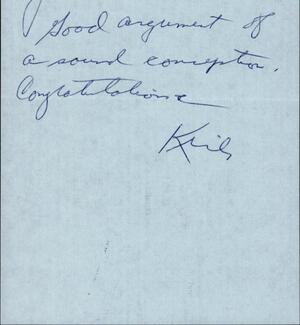 Good argument of
a sound conception.
Congratulations